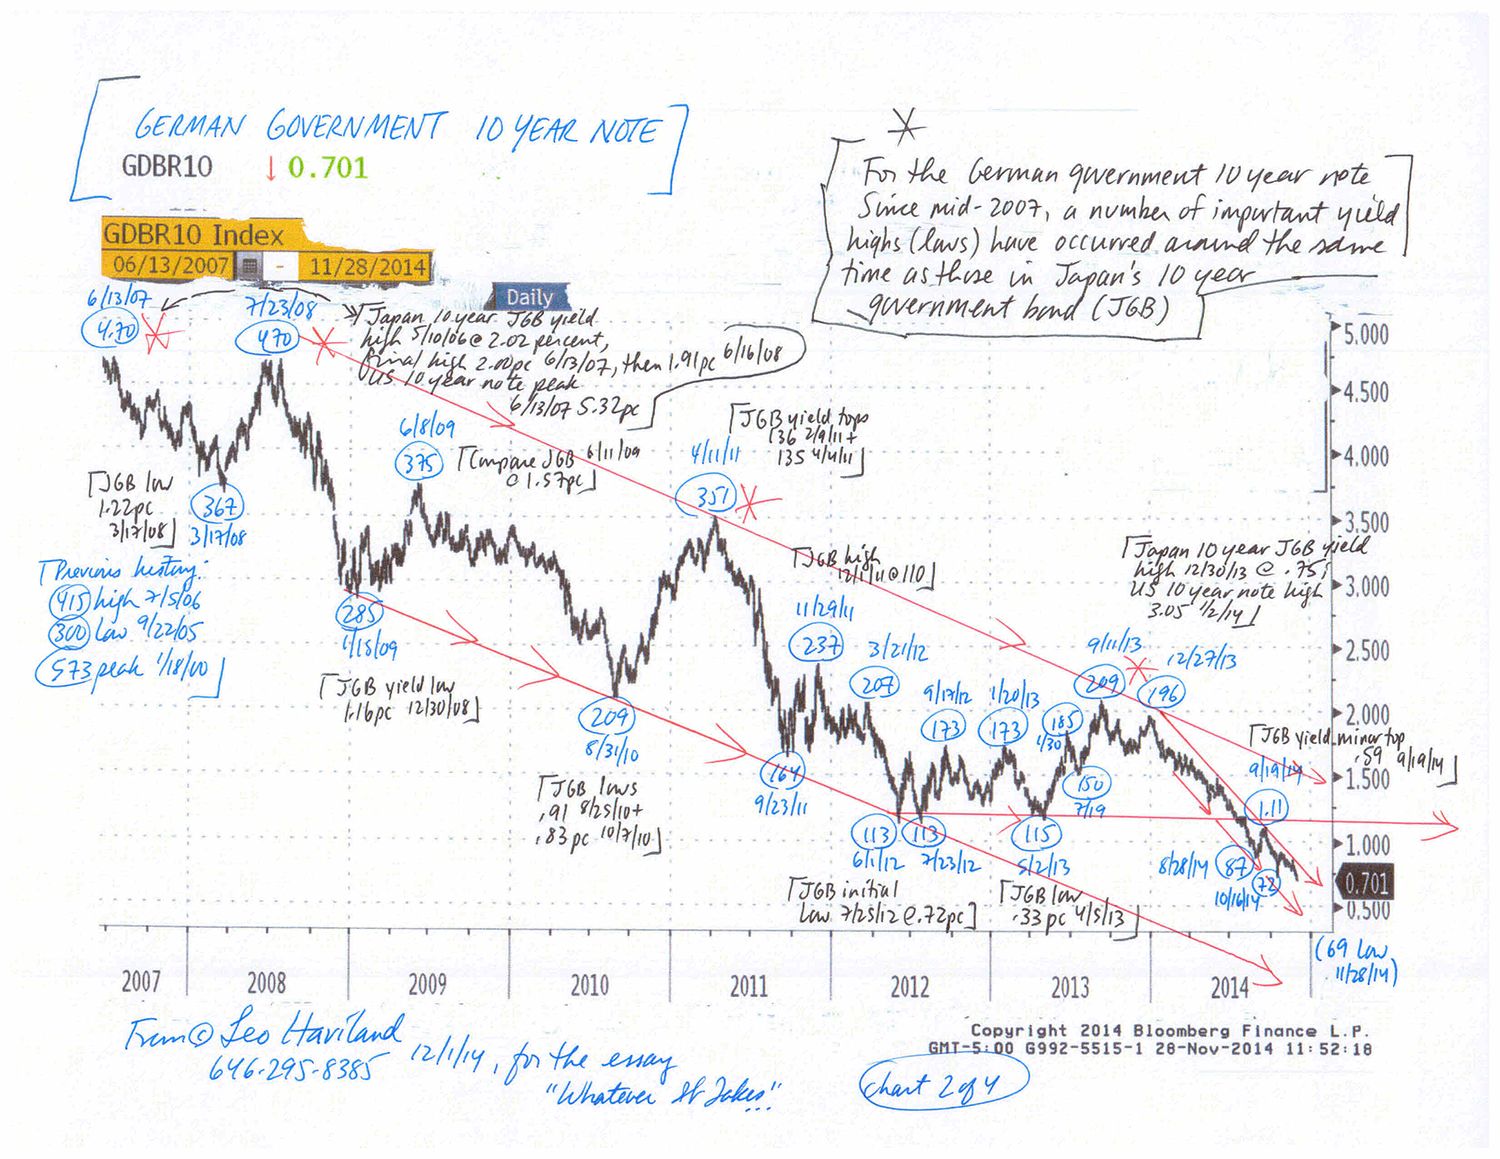 GERMAN GOVERNMENT 10 YEAR NOTE
GDBR10 ↓ 0.701
*
For the German government 10 year note
Since mid-2007, a number of important yield
highs (lows) have occurred around the same
time as those in Japan's 10 year
government bond (JGB)
GDBR10 Index
06/13/2007 - 11/28/2014
Daily
6/13/07
4.70
7/23/08
470
Japan 10 year JGB yield
high 5/10/06 @ 2.02 percent,
final high 2.00pc 6/13/07, then 1.91pc 6/16/08
US 10 year note peak
6/13/07 5.32pc
6/8/09
375
Compare JGB 6/11/09
@ 1.57pc
JGB yield tops
136 2/9/11 +
135 4/4/11
4/11/11
351
JGB low
1.22pc
3/17/08
367
3/17/08
Previous history:
415 high 7/5/06
300 low 9/22/05
573 peak 1/18/00
285
1/15/09
JGB yield low
1.16pc 12/30/08
209
8/31/10
JGB lows
.91 8/25/10 +
.83pc 10/7/10
JGB high
12/1/11 @ 110
11/29/11
237
164
9/23/11
3/21/12
207
9/17/12
173
1/20/13
173
185
1/30
150
7/19
9/11/13
209
12/27/13
196
Japan 10 year JGB yield
high 12/30/13 @ .75;
US 10 year note high
3.05 1/2/14
JGB yield minor top
.59 9/19/14
9/19/14
1.11
113
6/1/12
113
7/23/12
115
5/2/13
JGB initial
low 7/25/12 @ .72pc
JGB low
.33pc 4/5/13
8/28/14
87
72
10/16/14
(69 low
11/28/14)
5.000
4.500
4.000
3.500
3.000
2.500
2.000
1.500
1.000
0.701
0.500
2007 2008 2009 2010 2011 2012 2013 2014
Copyright 2014 Bloomberg Finance L.P.
GMT-5:00 G992-5515-1 28-Nov-2014 11:52:18
From © Leo Haviland
646-295-8385
12/1/14, for the essay
"Whatever It Takes..."
Chart 2 of 4